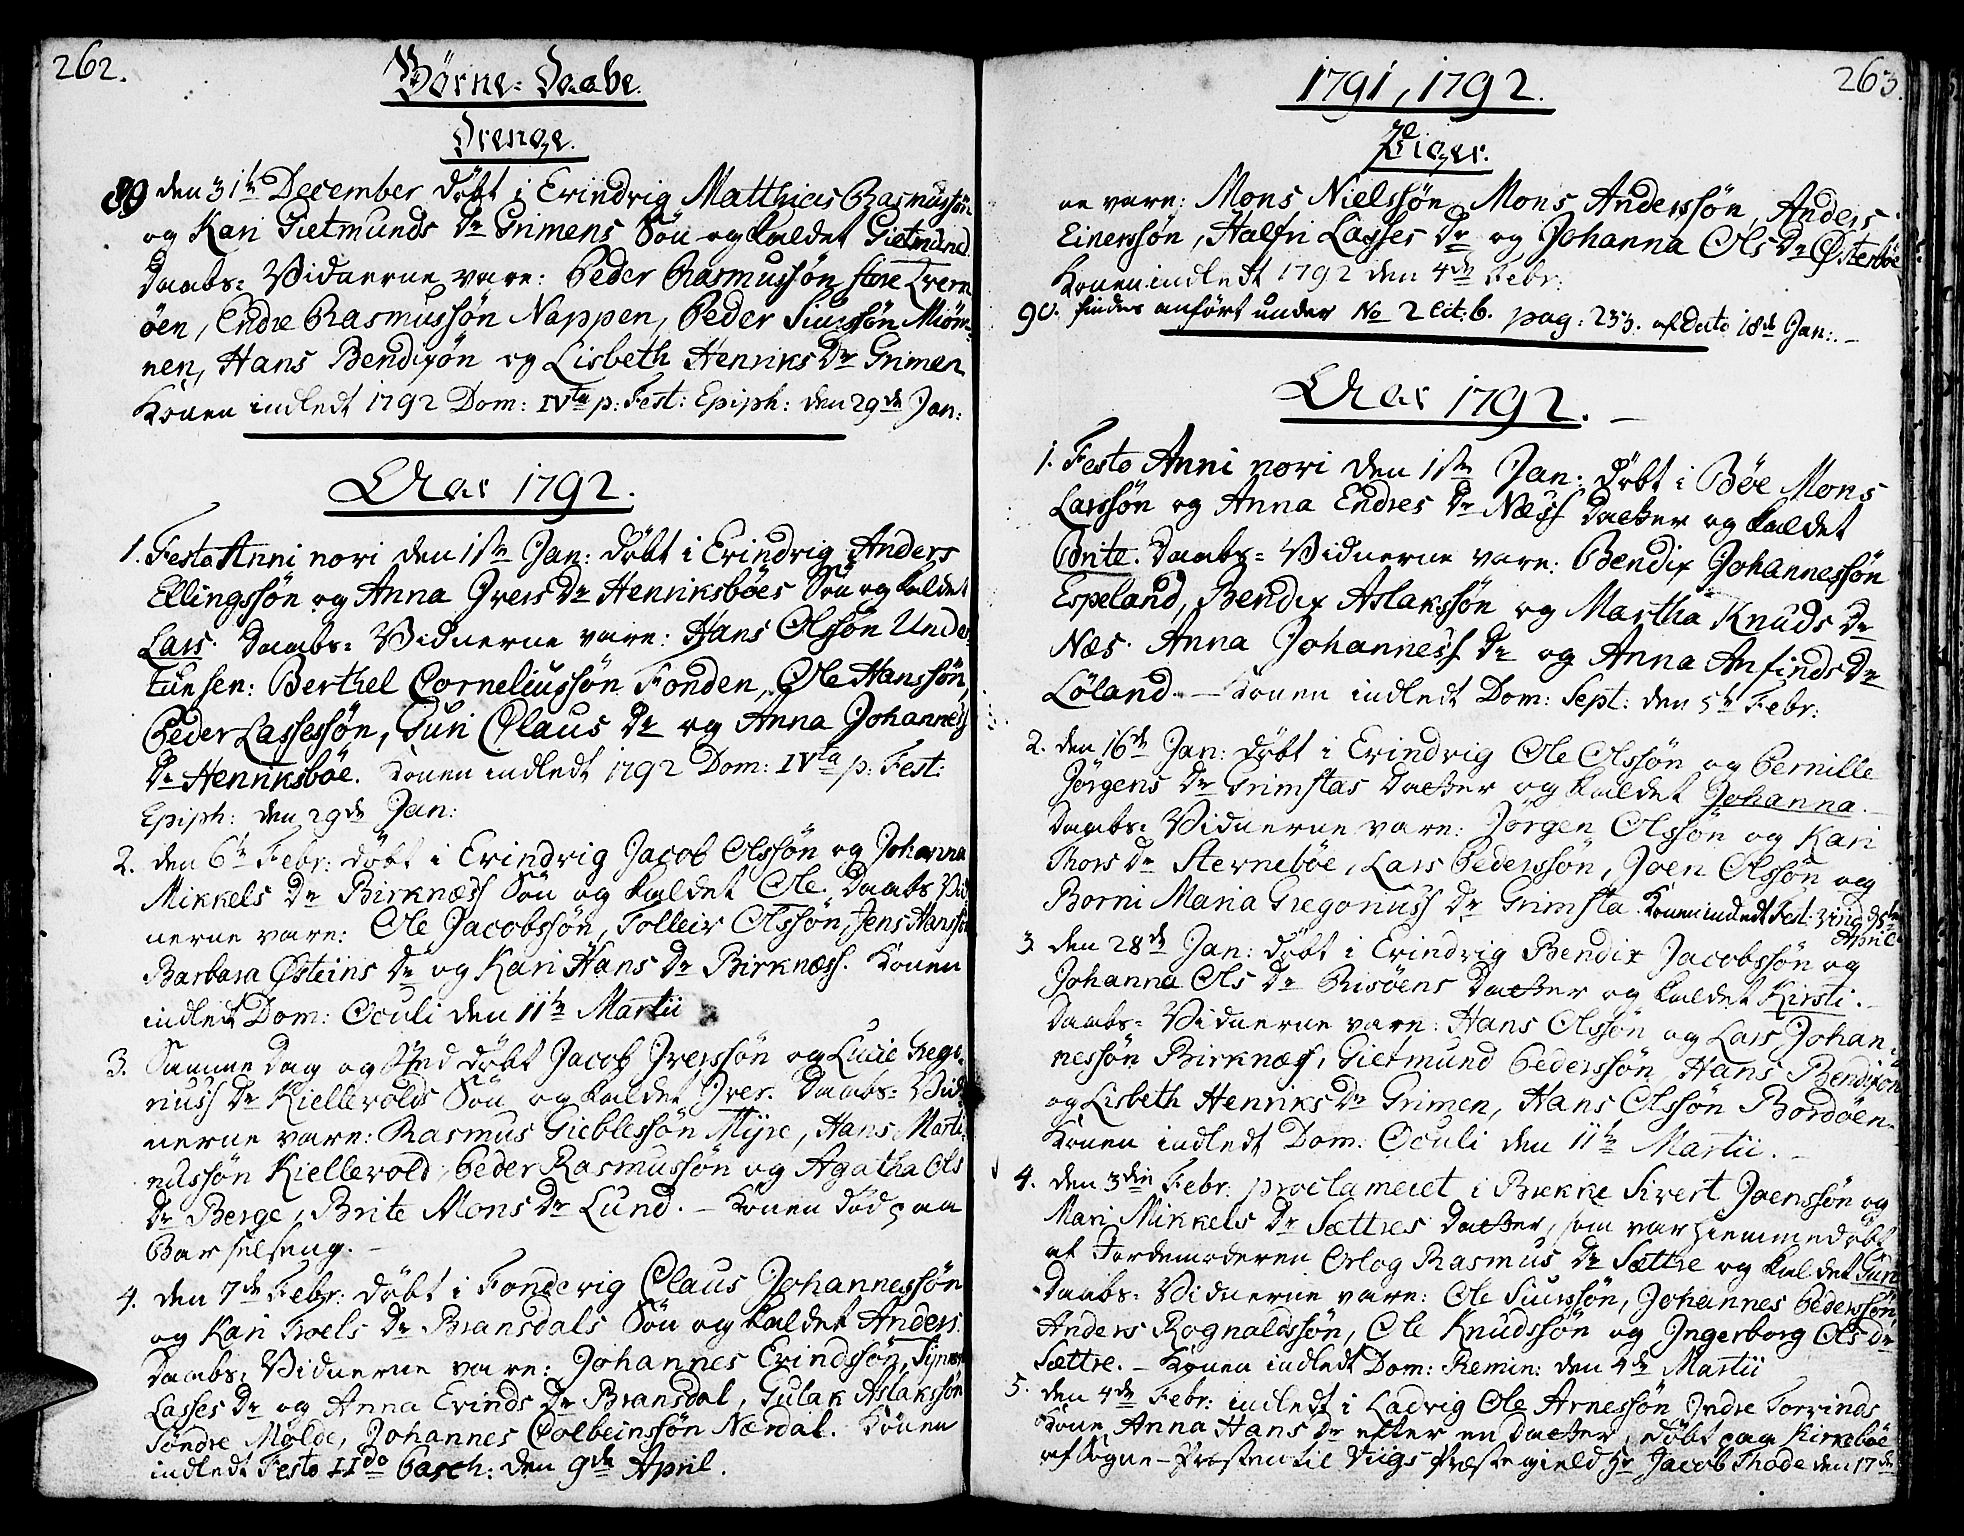 262.
Börne-Daabe.
Drenge.
89 den 31te December döbt i Evindvig Matthias Rasmussön
og Kari Gietmunds Dr Grimens Sön og kaldet Gietmund.
Daabs-Vidnerne vare: Peder Rasmussön store Qvern
öen, Endre Rasmussön Nappen, Peder Siurssön Miöm-
nen, Hans Bendixön og Lisbeth Henriks Dr Grimen
Konen indledt 1792 Dom: IVta p: Fest: Epiph: den 29de Jan:
Aar 1792.
1. Festo Anni novi den 1ste Jan: döbt i Evindvig Anders
Ellingssön og Anna Ivers Dr Henriksböes Sön og kaldet
Lars. Daabs-Vidnerne vare: Hans Olssön Under-
tunsen: Berthel Corneliussön Fonden, Ole Hanssön,
Peder Lassessön, Guri Claus Dr og Anna Johanness
Dr Henriksböe. Konen indledt 1792 Dom: IVta p: Fest:
Epiph: den 29de Jan:
2. den 6te Febr: döbt i Evindvig Jacob Olssön og Johanna
Mikkels Dr Birknæss Sön og kaldet Ole. Daabs Vid-
nerne vare: Ole Jacobssön, Tolleiv Olssön, Jens Hanssön
Barbara Östeins Dr og Kari Hans Dr Birknæss. Konen
indledt Dom: Oculi den 11te Martii
3. Samme Dag og Sted döbt Jacob Iverssön og Lucie Grego-
niuss Dr Kiellevolds Sön og kaldet Iver. Daabs-Vid
nerne vare: Rasmus Gieblessön Mÿre, Hans Marti-
nussön Kiellevold, Peder Rasmussön og Agatha Ols
Dr Berge, Brite Mons Dr Lund. - Konen död paa
Barselseng. -
4. den 7de Febr: döbt i Fondevig Claus Johannessön
og Kari Troels Dr Bransdals Sön og kaldet Anders.
Daabs-Vidnerne vare: Johannes Evindssön, Sÿnneve
Lasses Dr og Anna Evinds Dr Bransdal, Gulak Aslakssön
Söndre Molde, Johannes Colbeinssön Nærdal. Konen
indledt Festo IIdo Pasch: den 9de April.
1791, 1792.
263.
Piger.
ne vare: Mons Nielssön, Mons Anderssön, Anders
Einerssön, Halfri Lasses Dr og Johanna Ols Dr Österböe
Konen indledt 1792 den 4de Febr:
90. findes anfört under No 2 Lit: b. pag: 233. af Dato 18de Jan: -
Aar 1792. -
1. Festo Anni novi den 1ste Jan: döbt i Böe Mons
Larssön og Anna Endres Dr Næss Datter og kaldet
Brite. Daabs-Vidnerne vare: Bendix Johannessön
Espeland, Bendix Aslakssön og Martha Knuds Dr
Næs. Anna Johanness Dr og Anna Anfinds Dr
Löland. - Konen indledt Dom: Sept: den 5te Febr:
2. den 16de Jan: döbt i Evindvig Ole Olssön og Pernille
Jörgens Dr Grimstas Datter og kaldet Johanna. -
Daabs-Vidnerne vare: Jörgen Olssön og Kari
Thors Dr Sterneböe, Lars Pederssön, Joen Olssön og
Borni Maria Gregoriuss Dr Grimsta. Konen indledt Fest:
April
3. den 28de Jan: döbt i Evindvig Bendix Jacobssön og
Johanna Ols Dr Risöens Datter og kaldet Kirsti. -
Daabs-Vidnerne vare: Hans Olssön og Lars Johan-
nessön Birknæss, Gietmund Pederssön, Hans Bendixön
og Lisbeth Henriks Dr Grimen, Hans Olssön Bordöen.
Konen indledt Dom: Oculi den 11te Martii. -
4. den 3die Febr: proclameret i Brekke Sivert Joenssön og
Mari Mikkels Dr Sættres Datter, som var hiemmedöbt
af Jordemoderen Orlog Rasmus Dr Sættre og kaldet Guri
Daabs-Vidnerne vare: Ole Siurssön, Johannes Pederssön,
Anders Rognaldssön, Ole Knudssön og Ingerborg Ols Dr
Sættre. - Konen indledt Dom: Remin: den 4de Martii
5. den 4de Febr: indledt i Ladvig Ole Arnessön Indre Torvinds
Kone Anna Hans Dr efter en Datter, döbt paa Kirkeböe
af Sogne-Præsten til Viigs Præstegield Hr Jacob Thode den 17de